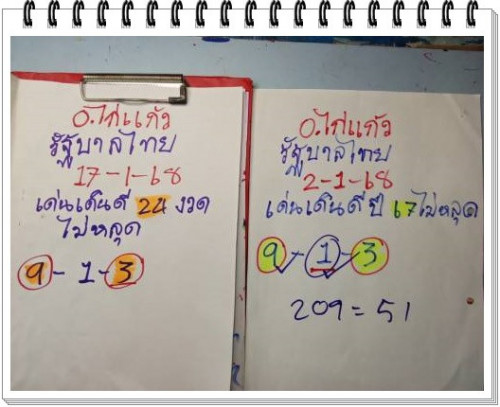 อ.ไก่แก้ว
รัฐบาลไทย
17-1-68
เด่นเดินดี 24 งวด
ไม่หลุด
9-1-3
อ.ไก่แก้ว
รัฐบาลไทย
2-1-68
เด่นเดินดี ปี 67 ไม่หลุด
9-1-3
209=51